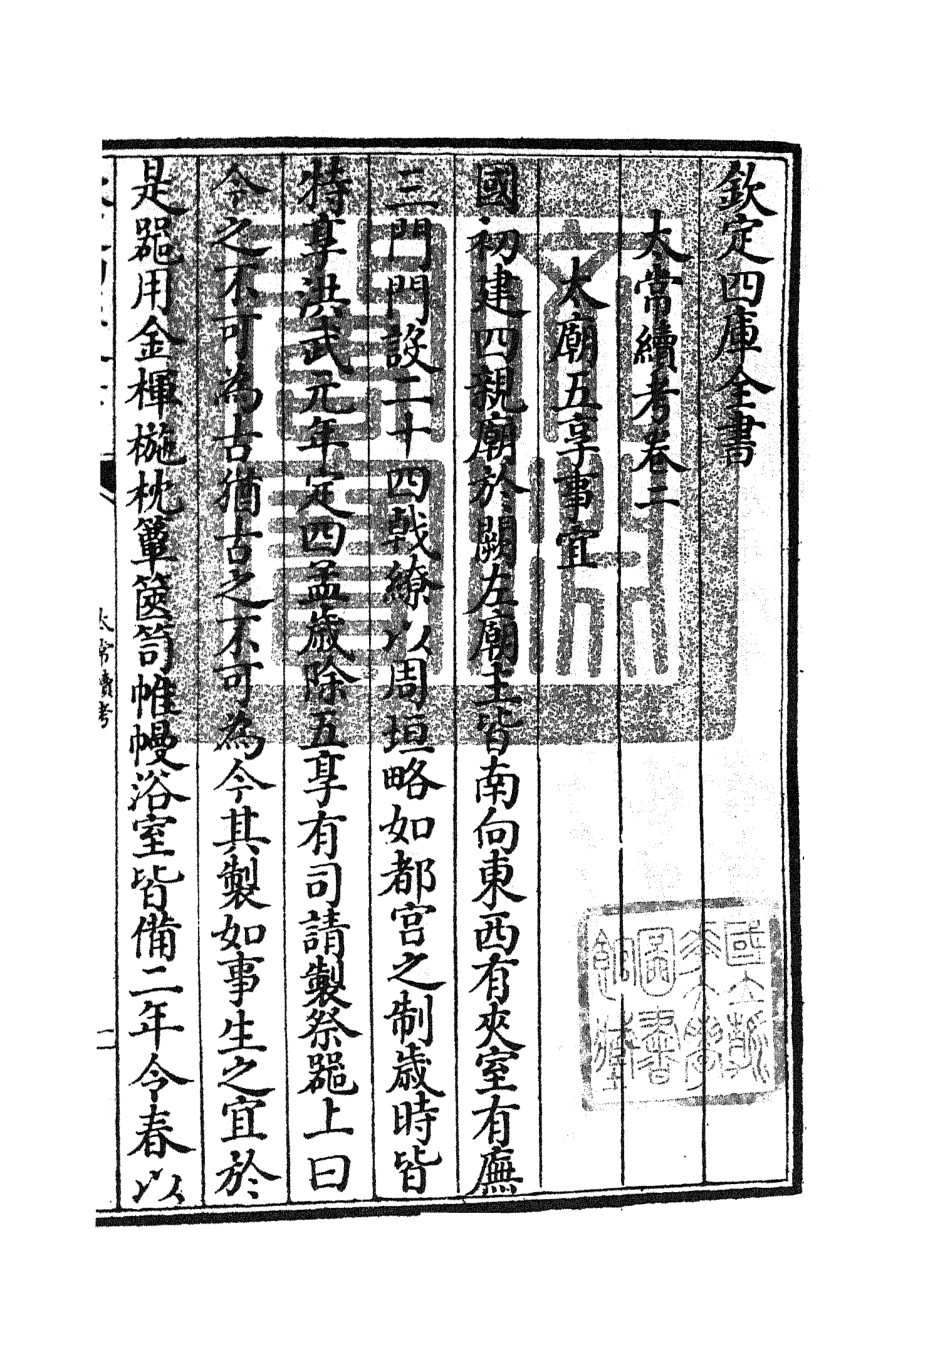 欽定四庫全書
太常續考卷二
太廟五享事宜
國初建四親廟於闕左廟主皆南向東西有夾室有廡
三門門設二十四戟繚以周垣略如都宮之制歲時皆
特享洪武元年定四孟歲除五享有司請製祭器上曰
今之不可為古猶古之不可為今其製如事生之宜於
是器用金楎椸枕簟篋笥帷幔浴室皆備二年令春以
太常續考
國立浙江大學圖書館藏